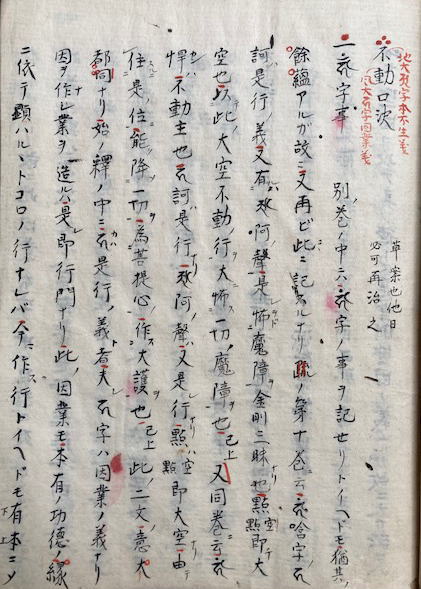 地大阿字本不生義
風大訶字因業義
不動口決
草案也他日
必可再治之
一𑖮字事 別ノ巻ノ中ニ六𑖮字ノ事ヲ記セリトイヘドモ猶其ノ
餘蘊アルガ故ニ又再ビ此ニ記スルナリ疏ノ第十巻ニ云唅字ノ
訶是行ノ義又有阿ノ聲是怖魔障金剛三昧也點即大
空也以此ノ大空不動ノ行ヲ大怖一切ノ魔障ヲ也已上又同巻ニ云
悍不動主也訶是行阿ノ聲又是行點點即大空由テ
住是ノ位能降一切ヲ為菩提心作大護也已上此ノ二文ノ意大
都同ナリ始ノ釋ノ中ニ是行ノ義者夫レ字ハ因業ノ義ナリ
因ヲ作レ業ヲ造ルハ是レ即行門ナリ此ノ因業モ本有ノ功徳ノ縁
ニ依テ顕ハルヽトコロノ行ナレバ今作行トイヘドモ有本ニ〆